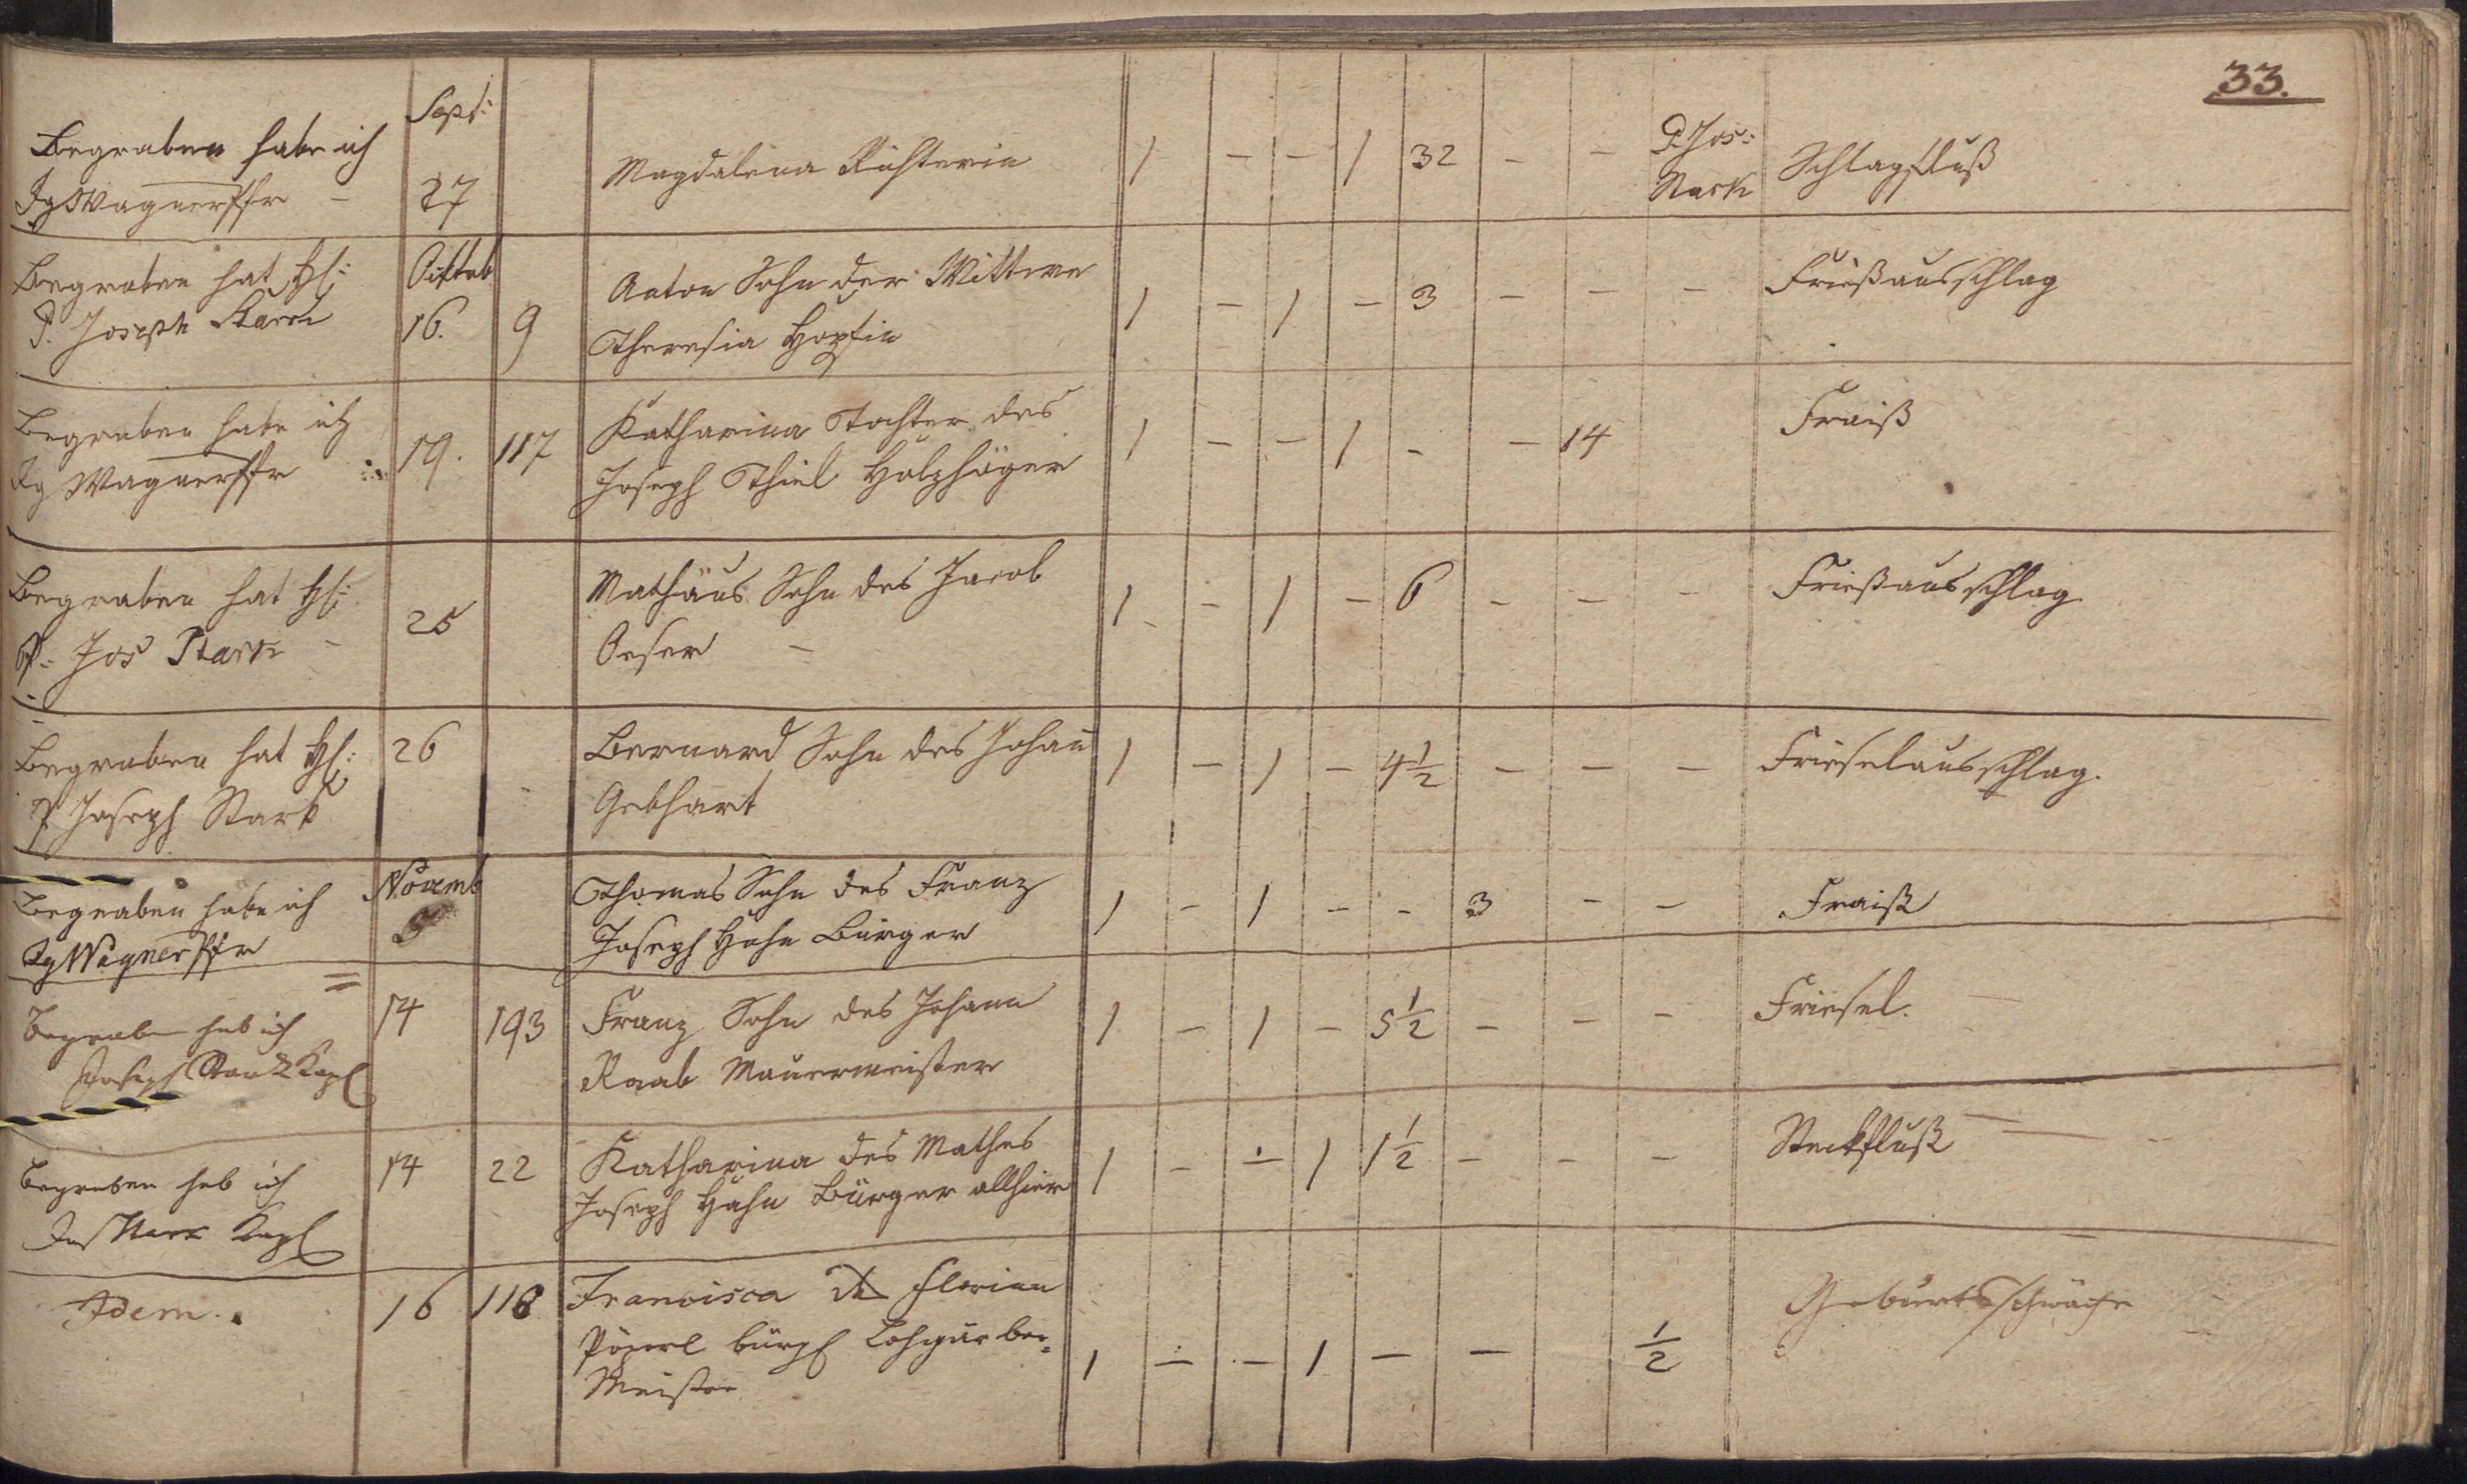 33.
Sept:
Begraben habe ich
Jg Wagner Pfr – 27 Magdalena Richterin 1 – – 1 32 – – P. Jos: Stark Schlagfluß
Begraben hat H:
P. Joseph Stark
Octob
16. 9 Anton Sohn der Wittwe
Theresia Hopfin 1 – 1 – 3 – – – Frießausschlag
Begraben habe ich
Jg Wagner Pfr 19. 117 Katharina Tochter des
Joseph Thiel Holzhäger 1 – – 1 – – 14 Fraiß
Begraben hat H:
P. Jos Stark – 25 Mathäus Sohn des Jacob
Oeser – 1 – 1 – 6 – – – Frießausschlag
Begraben hat H:
P Joseph Stark 26 Bernard Sohn des Johann
Gebhart 1 – 1 – 4 1/2 – – – Frieselausschlag.
Begraben habe ich
Jg Wagner Pfr
Novemb
Thomas Sohn des Franz
Joseph Hahn Bürger 1 – 1 – – 3 – – Fraiß
Begraben hab ich
Joseph Stark Kapl 14 193 Franz Sohn des Johann
Raab Mauermeister 1 – 1 – 5 1/2 – – – Friesel.
Begraben hab ich
Jos Stark Kapl 14 22 Katharina des Mathes
Joseph Hahn Bürger allhier 1 – – 1 1 1/2 – – – Steckfluß
Idem. 16 118 Francisca des Florian
bürgl Lohgärber=
Meister 1 – – 1 – – 1/2 Geburtsschwäche